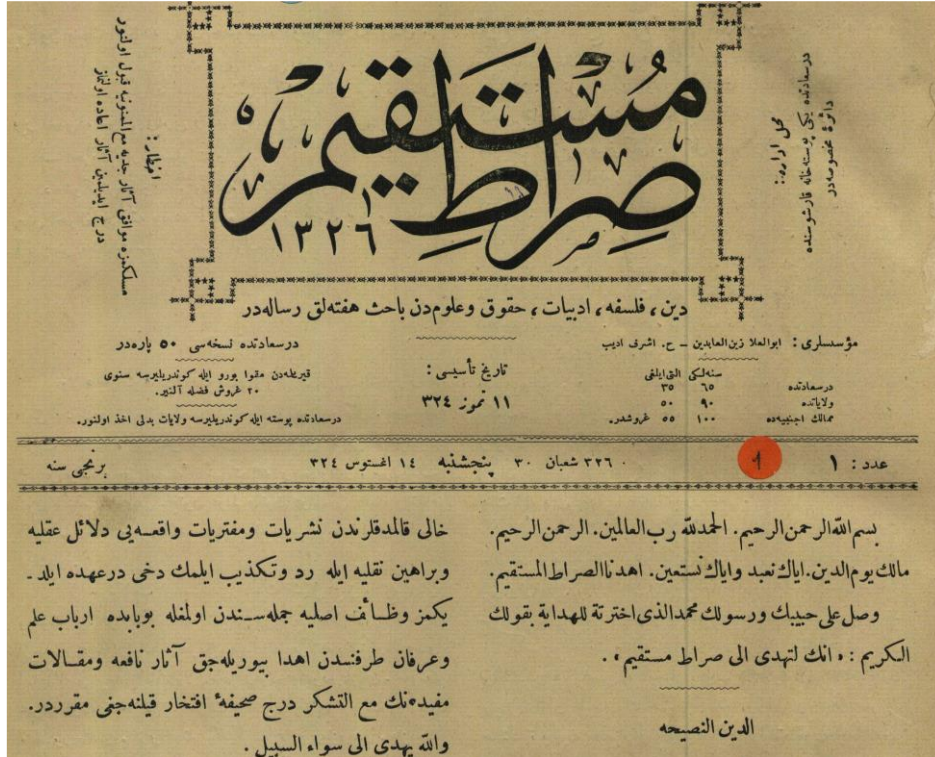 صراط مستقيم
١٣٢٦
محل اداره :
درسعادتده يكی پوسته‌خانه قارشوسنده
دائرهٔ مخصوصه‌در
اخطار :
مسلكمزه موافق آثار جديه مع‌الممنونيه قبول اولنور
درج ايديلمين آثار اعاده اولنماز
دين ، فلسفه ، ادبيات ، حقوق وعلومدن باحث هفته‌لق رساله‌در
مؤسسلری : ابوالعلا زين‌العابدين – ح. اشرف اديب
سنه‌لكی التی‌آيلغی
درسعادتده ٦٥ ٣٥
ولاياتده ٩٠ ٥٠
ممالك اجنبيه‌ده ١٠٠ ٥٥ غروشدر.
تاريخ تأسيسی :
١١ تموز ٣٢٤
درسعادتده نسخه‌سی ٥٠ پاره‌در
قيريله‌دن مقوا بورو ايله كوندريليرسه سنوی
٢٠ غروش فضله آلنير.
درسعادتده پوسته ايله كوندريليرسه ولايات بدلی اخذ اولنور.
عدد : ١
1
٣٢٦ شعبان ٣٠ پنجشنبه ١٤ اغستوس ٣٢٤
برنجی سنه
بسم الله الرحمن الرحيم. الحمدلله رب العالمين. الرحمن الرحيم.
مالك يوم الدين. اياك نعبد واياك نستعين. اهدنا الصراط المستقيم.
وصل علی حبيبك ورسولك محمد الذی اخترته للهداية بقولك
الكريم : « انك لتهدی الی صراط مستقيم » .
الدين النصيحه
خالی قالمدقلرندن نشريات ومفتريات واقعه‌يی دلائل عقليه
وبراهين نقليه ايله رد وتكذيب ايلمك دخی درعهده ايلد -
يكمز وظائف اصليه جمله‌سندن اولمغله بوبابده ارباب علم
وعرفان طرفندن اهدا بيوريله‌جق آثار نافعه ومقالات
مفيده‌نك مع التشكر درج صحيفهٔ افتخار قيلنه‌جغی مقرردر.
والله يهدی الی سواء السبيل .